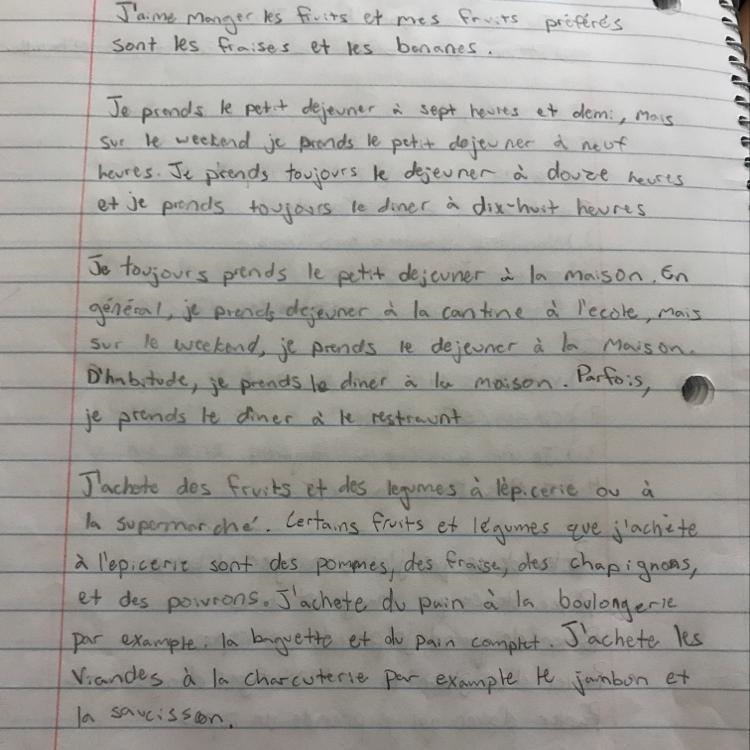 J'aime manger les fruits et mes fruits préférés
sont les fraises et les bananes.
Je prends le petit dejeuner à sept heures et demi, mais
sur le weekend je prends le petit dejeuner à neuf
heures. Je prends toujours le dejeuner à douze heures
et je prends toujours le diner à dix-huit heures
Je toujours prends le petit dejeuner à la maison. En
général, je prends dejeuner à la cantine à l'ecole, mais
sur le weekend, je prends le dejeuner à la maison.
D'habitude, je prends le diner à la maison. Parfois,
je prends le diner à le restraunt
J'achete des fruits et des legumes à l'épicerie ou à
la supermarché. Certains fruits et légumes que j'achète
à l'epicerie sont des pommes, des fraise, des chapignons,
et des poivrons. J'achete du pain à la boulongerie
par example. la baguette et du pain complet. J'achete les
viandes à la charcuterie par example le jambon et
la saucisson.